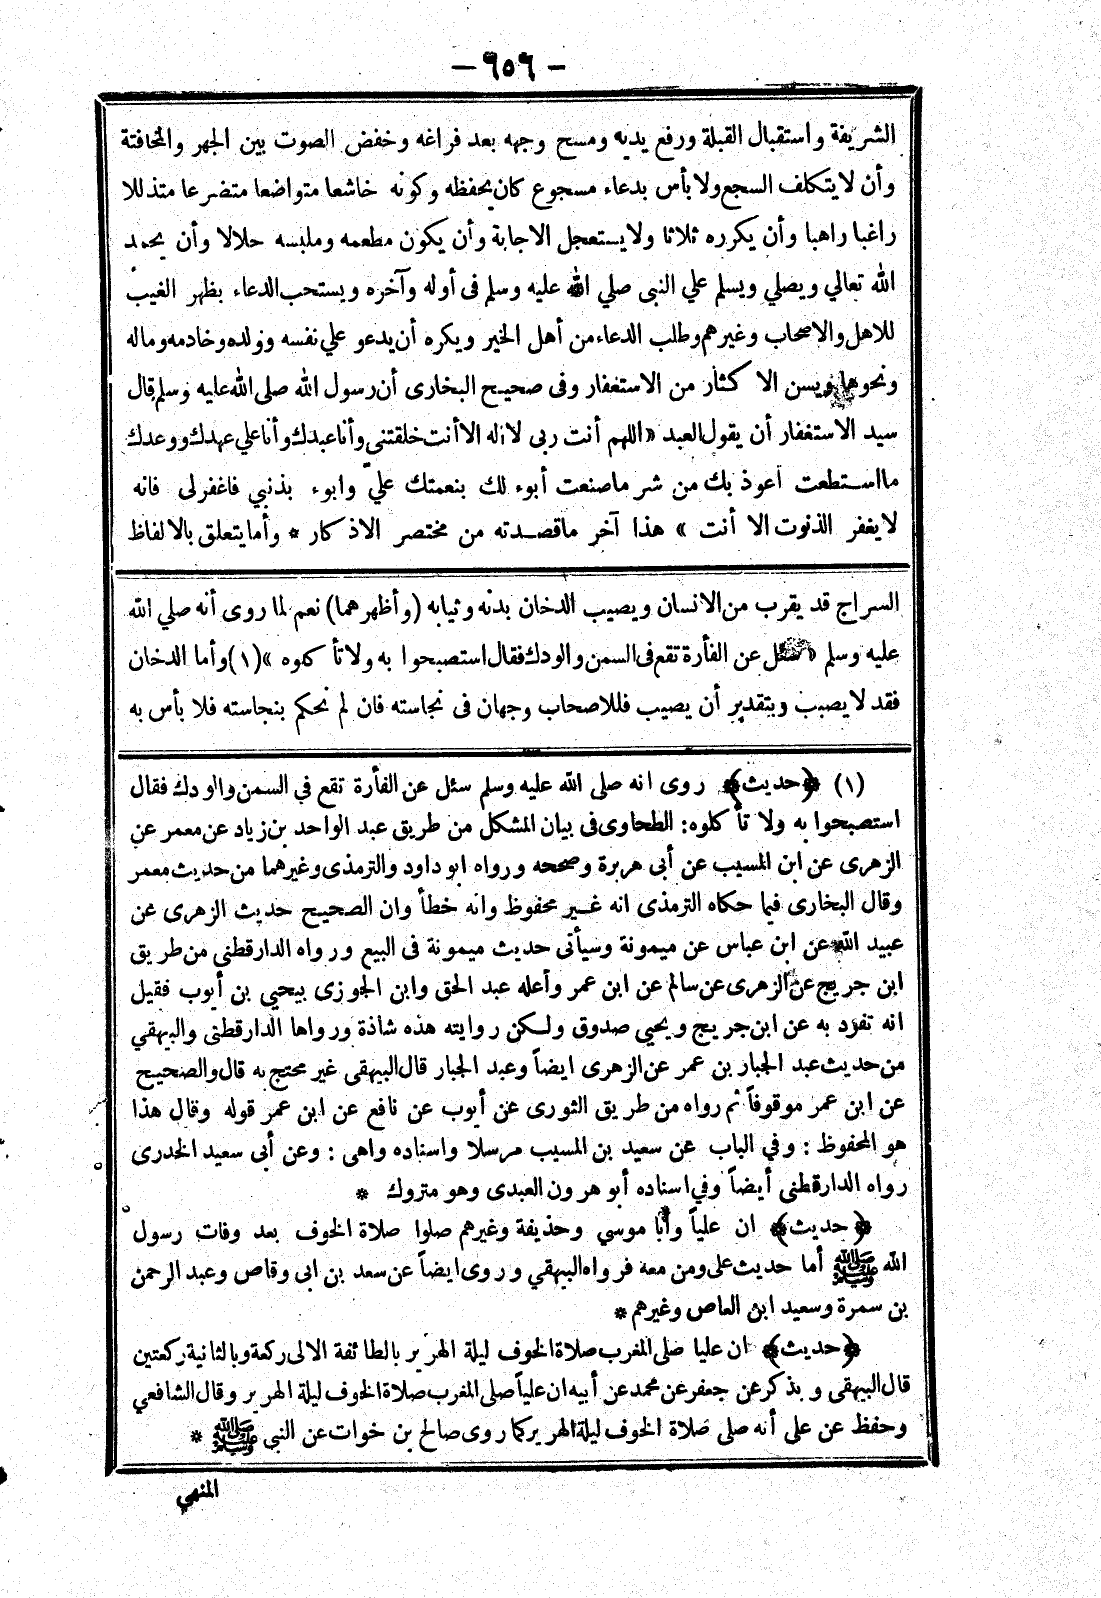 - ٦٥٦ -
الشريفة واستقبال القبلة ورفع يديه ومسح وجهه بعد فراغه وخفض الصوت بين الجهر والمخافتة
وأن لا يتكلف السجع ولا بأس بدعاء مسجوع كان يحفظه وكونه خاشعا متواضعا متضرعا متذللا
راغبا راهبا وأن يكرره ثلاثا ولا يستعجل الاجابة وأن يكون مطعمه وملبسه حلالا وأن يحمد
الله تعالي ويصلي ويسلم علي النبى صلي الله عليه وسلم فى أوله وآخره ويستحب الدعاء بظهر الغيب
للاهل والاصحاب وغيرهم وطلب الدعاء من أهل الخير ويكره أن يدعو علي نفسه وولده وخادمه وماله
ونحوها ويسن الاكثار من الاستغفار وفى صحيح البخارى أن رسول الله صلى الله عليه وسلم قال
سيد الاستغفار أن يقول العبد «اللهم أنت ربى لا إله الا أنت خلقتنى وأنا عبدك وأنا علي عهدك ووعدك
ما استطعت أعوذ بك من شر ما صنعت أبوء لك بنعمتك عليّ وابوء بذنبي فاغفر لى فانه
لا يغفر الذنوت الا أنت » هذا آخر ما قصدته من مختصر الاذكار * وأما يتعلق بالالفاظ
السراج قد يقرب من الانسان ويصيب الدخان بدنه وثيابه (وأظهرهما) نعم لما روى أنه صلي الله
عليه وسلم « سئل عن الفأرة تقع فى السمن والودك فقال استصبحوا به ولا تأكلوه »(١) وأما الدخان
فقد لا يصيب وبتقدير أن يصيب فللاصحاب وجهان فى نجاسته فان لم نحكم بنجاسته فلا بأس به
(١) ﴿حديث﴾ روى انه صلى الله عليه وسلم سئل عن الفأرة تقع في السمن والودك فقال
استصبحوا به ولا تأكلوه: الطحاوى فى بيان المشكل من طريق عبد الواحد بن زياد عن معمر عن
الزهرى عن ابن المسيب عن أبى هريرة وصححه ورواه ابو داود والترمذى وغيرهما من حديث معمر
وقال البخارى فيما حكاه الترمذى انه غير محفوظ وانه خطأ وان الصحيح حديث الزهرى عن
عبيد الله عن ابن عباس عن ميمونة وسيأتى حديث ميمونة فى البيع ورواه الدارقطني من طريق
ابن جريج عن الزهرى عن سالم عن ابن عمر وأعله عبد الحق وابن الجوزى بيحيي بن أيوب فقيل
انه تفرد به عن ابن جريج ويحي صدوق ولكن روايته هذه شاذة ورواها الدارقطنى والبيهقي
من حديث عبد الجبار بن عمر عن الزهرى ايضاً وعبد الجبار قال البيهقى غير محتج به قال والصحيح
عن ابن عمر موقوفاً ثم رواه من طريق الثورى عن أيوب عن نافع عن ابن عمر قوله وقال هذا
هو المحفوظ : وفي الباب عن سعيد بن المسيب مرسلا واسناده واهى : وعن أبى سعيد الخدرى
رواه الدارقطنى أيضاً وفي اسناده أبو هرون العبدى وهو متروك *
﴿حديث﴾ ان علياً وأبا موسي وحذيفة وغيرهم صلوا صلاة الخوف بعد وفات رسول
الله ﷺ أما حديث على ومن معه فرواه البيهقي وروى ايضاً عن سعد بن ابى وقاص وعبد الرحمن
بن سمرة وسعيد ابن العاص وغيرهم *
﴿حديث﴾ ان عليا صلى المغرب صلاة الخوف ليلة الهرير بالطائفة الاولى ركعة وبالثانية ركعتين
قال البيهقى ويذكر عن جعفر عن محمد عن أبيه ان علياً صلى المغرب صلاة الخوف ليلة الهرير وقال الشافعي
وحفظ عن على أنه صلى صلاة الخوف ليلة الهرير كما روى صالح بن خوات عن النبي ﷺ *
المنهي